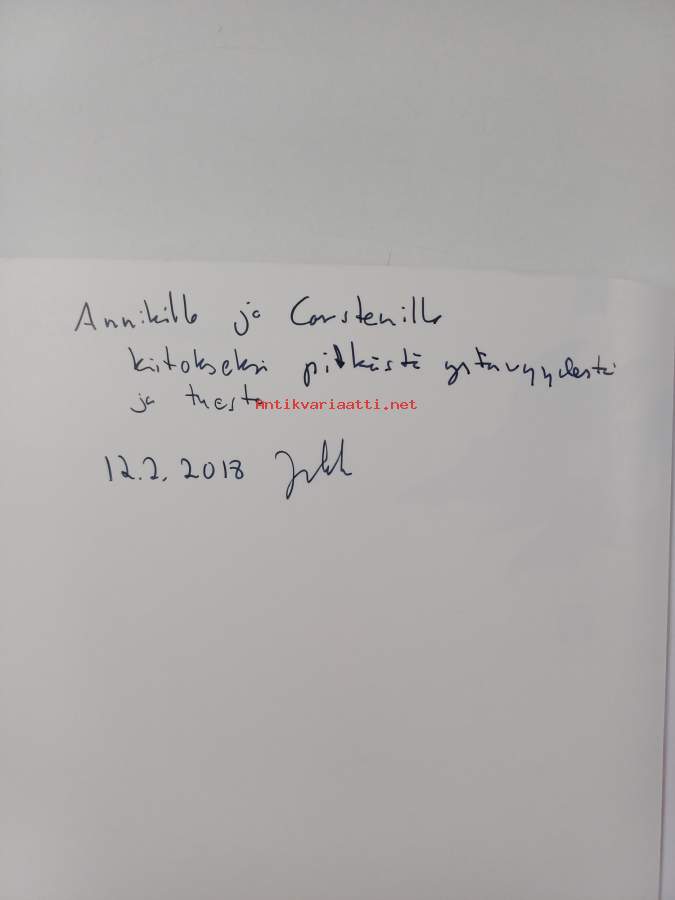 Annikille ja Carstenille
kiitokseksi pitkästä ystävyydestä
ja tuesta
Antikvariaatti.net
12.2.2018